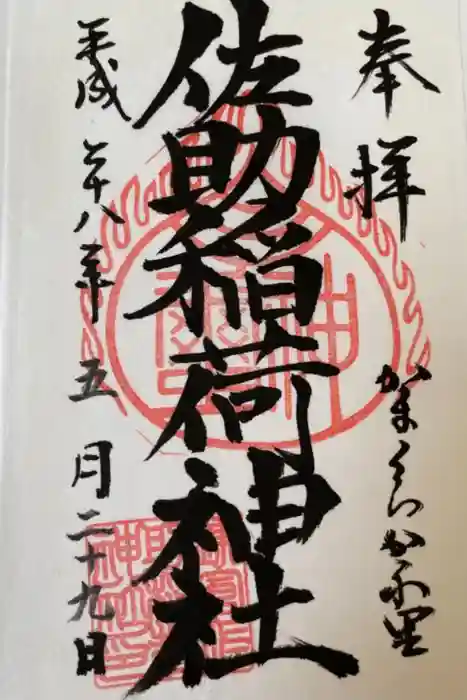 奉拝
かまくらかくれ里
佐助稲荷神社
平成二十八年五月二十九日